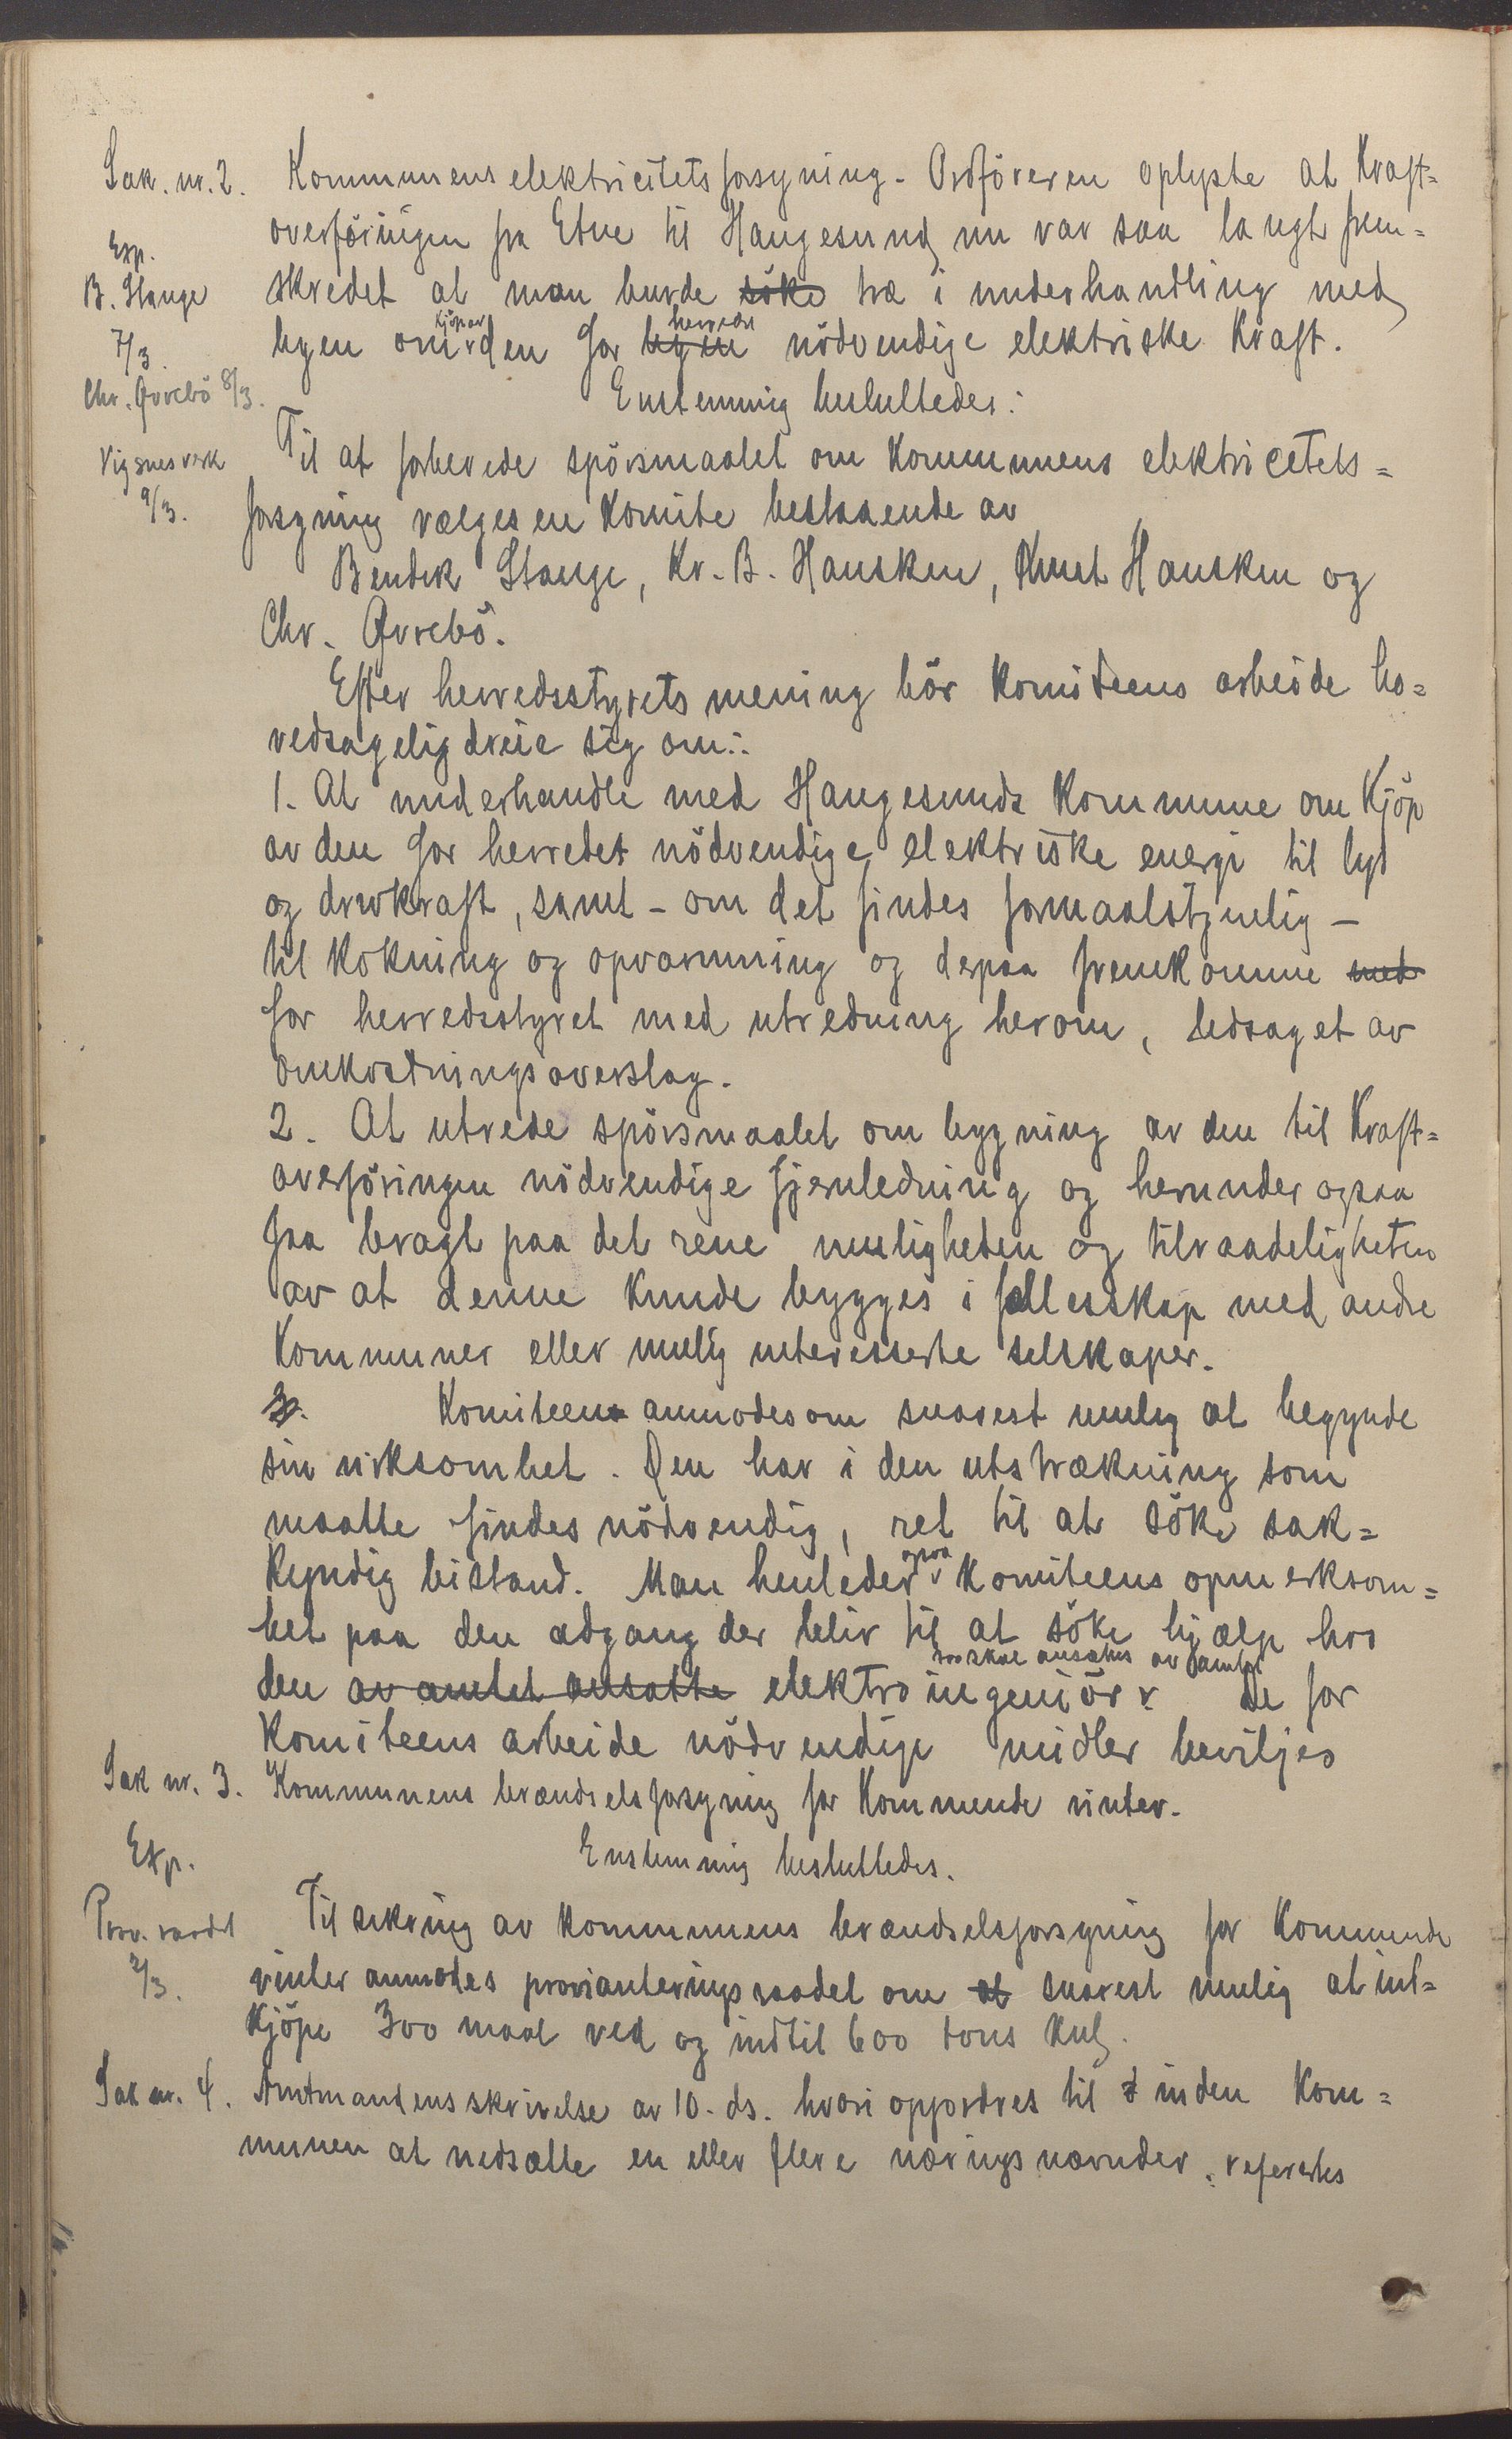 Sak. nr. 2. Kommunens elektricitetsforsyning. Ordföreren oplyste at Kraft=
overföringen fra Etne til Haugesund nu var saa langt frem=
Exp.
B. Stange
7/3.
Chr. Qvrebö 8/3.
Vigsnes verk
9/3.
skredet at man burde söke træ i underhandling med
byen om kjöp av den for byen herredet nödvendige elektriske Kraft.
Enstemmig besluttedes:
Til at forberede spörsmaalet om Kommunens elektricetets=
forsyning vælges en Komite bestaaende av
Bendik Stange, Kr. B. Hausken, Knut Hausken og
Chr. Qvrebö.
Efter herredsstyrets mening bör Komiteens arbeide ho=
vedsagelig dreie sig om:
1. At underhandle med Haugesunds Kommune om Kjöp
av den for herredet nödvendige elektriske energi til lys
og drivkraft, samt - om det findes formaalstjenlig -
til Kokning og opvarmning og derpaa fremkomme med
for herredsstyret med utredning herom, ledsaget av
omkostningsoverslag.
2. At utrede spörsmaalet om bygning av den til Kraft=
overföringen nödvendige fjernledning og herunder ogsaa
faa bragt paa det rene muligheden og tilraadeligheten
av at denne Kunde bygges i fællesskap med andre
Kommuner eller mulig interesserte selskaper.
3. Komiteen anmodes om snarest mulig at begynde
sin virksomhet. Den har i den utstrækning som
maatte findes nödvendig, ret til at söke sak=
Kyndig bistand. Man henleder ogsaa Komiteens opmerksom=
het paa den adgang der blir til at söke hjælp hos
den av amtet ansatte elektroingeniör som skal ansættes av amtet de for
Komiteens arbeide nödvendige midler beviljes
Sak nr. 3. Kommunens brændselsforsyning for Kommende vinter.
Exp.
Enstemmig besluttedes.
Prov. raadet
2/3.
Til sikring av Kommunens brændselsforsyning for Kommende
vinter anmodes provianteringsraadet om at snarest mulig at ind=
Kjöpe 300 maal ved og indtil 600 tons Kul.
Sak nr. 4. Amtmandens skrivelse av 10. ds. hvori opfordres til inden Kom=
munen at nedsætte en eller flere næringsnævnder, referertes